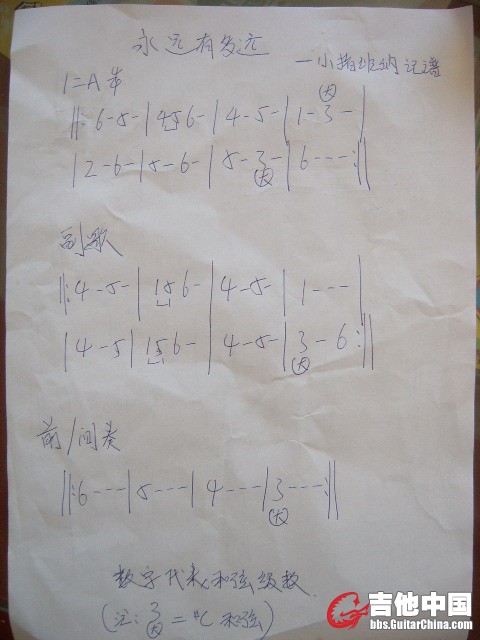 永远有多远
—小猪班纳记谱
1=A 4/4
大
‖: 6-5- | 456- | 4-5- | 1-3- |
| 2-6- | 5-6- | 5-3- | 6--- :‖
大
副歌
‖: 4-5- | 156- | 4-5- | 1--- |
| 4-5 | 156- | 4-5- | 3-6 :‖
大
前/间奏
‖: 6--- | 5---- | 4---- | 3---- :‖
大
数字代表和弦级数
(注: 3大 = #C 和弦)
吉他中国
bbs.GuitarChina.com